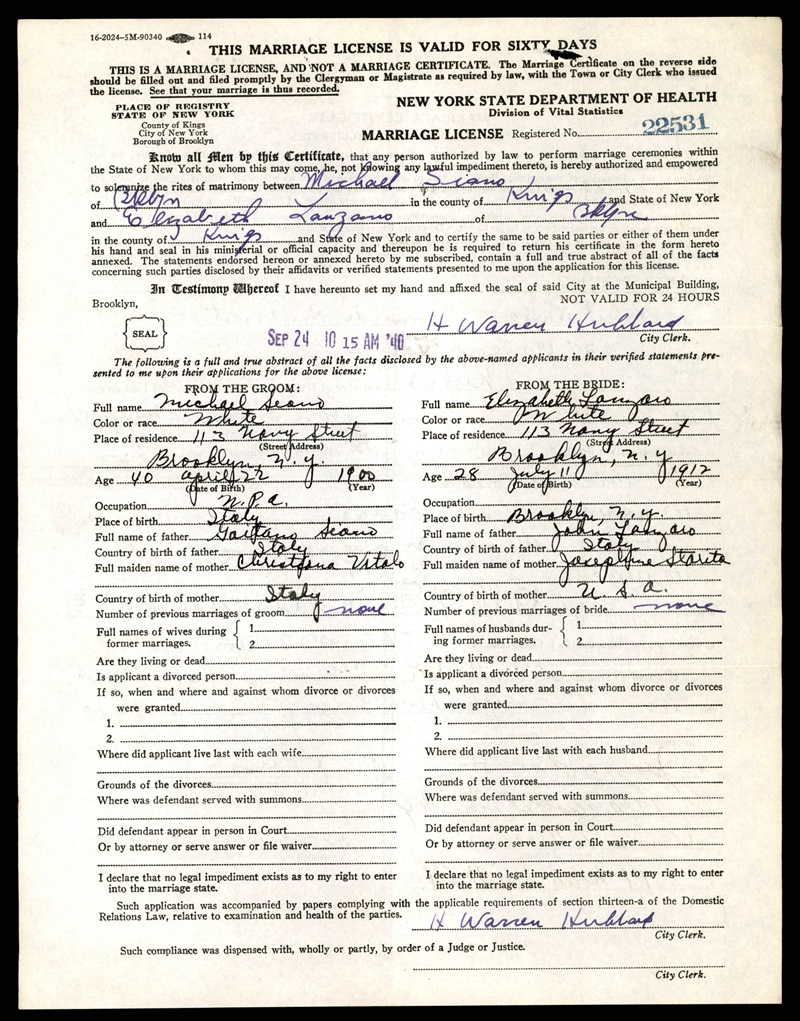 16-2024-5M-90340 114
THIS MARRIAGE LICENSE IS VALID FOR SIXTY DAYS
THIS IS A MARRIAGE LICENSE, AND NOT A MARRIAGE CERTIFICATE. The Marriage Certificate on the reverse side
should be filled out and filed promptly by the Clergyman or Magistrate as required by law, with the Town or City Clerk who issued
the license. See that your marriage is thus recorded.
PLACE OF REGISTRY
STATE OF NEW YORK
County of Kings
City of New York
Borough of Brooklyn
NEW YORK STATE DEPARTMENT OF HEALTH
Division of Vital Statistics
MARRIAGE LICENSE Registered No. 22531
Know all Men by this Certificate, that any person authorized by law to perform marriage ceremonies within
the State of New York to whom this may come, he, not knowing any lawful impediment thereto, is hereby authorized and empowered
to solemnize the rites of matrimony between Michael Scano
of Bklyn in the county of Kings and State of New York
and Elizabeth Lanzano of Bklyn
in the county of Kings and State of New York and to certify the same to be said parties or either of them under
his hand and seal in his ministerial or official capacity and thereupon he is required to return his certificate in the form hereto
annexed. The statements endorsed hereon or annexed hereto by me subscribed, contain a full and true abstract of all of the facts
concerning such parties disclosed by their affidavits or verified statements presented to me upon the application for this license.
In Testimony Whereof I have hereunto set my hand and affixed the seal of said City at the Municipal Building,
Brooklyn, NOT VALID FOR 24 HOURS
SEAL
SEP 24 10 15 AM '40
H Warren Hubbard
City Clerk.
The following is a full and true abstract of all the facts disclosed by the above-named applicants in their verified statements pre-
sented to me upon their applications for the above license:
FROM THE GROOM:
Full name Michael Scano
Color or race White
Place of residence 113 Navy Street
(Street Address)
Brooklyn N.y.
Age 40 April 22 1900
(Date of Birth) (Year)
Occupation W.P.A.
Place of birth Italy
Full name of father Gaetano Scano
Country of birth of father Italy
Full maiden name of mother Vitale
Country of birth of mother Italy
Number of previous marriages of groom none
Full names of wives during 1
former marriages. 2
Are they living or dead
Is applicant a divorced person
If so, when and where and against whom divorce or divorces
were granted
1.
2.
Where did applicant live last with each wife
Grounds of the divorces
Where was defendant served with summons
Did defendant appear in person in Court
Or by attorney or serve answer or file waiver
I declare that no legal impediment exists as to my right to enter
into the marriage state.
FROM THE BRIDE:
Full name Elizabeth Lanzaro
Color or race White
Place of residence 113 Navy Street
(Street Address)
Brooklyn, N.y
Age 28 July 11 1912
(Date of Birth) (Year)
Occupation
Place of birth Brooklyn, N.y.
Full name of father John Lanzaro
Country of birth of father Italy
Full maiden name of mother Josephine Starita
Country of birth of mother U.S.A.
Number of previous marriages of bride none
Full names of husbands dur- 1
ing former marriages. 2
Are they living or dead
Is applicant a divorced person
If so, when and where and against whom divorce or divorces
were granted
1.
2.
Where did applicant live last with each husband
Grounds of the divorces
Where was defendant served with summons
Did defendant appear in person in Court
Or by attorney or serve answer or file waiver
I declare that no legal impediment exists as to my right to enter
into the marriage state.
Such application was accompanied by papers complying with the applicable requirements of section thirteen-a of the Domestic
Relations Law, relative to examination and health of the parties. H Warren Hubbard
City Clerk.
Such compliance was dispensed with, wholly or partly, by order of a Judge or Justice.
City Clerk.